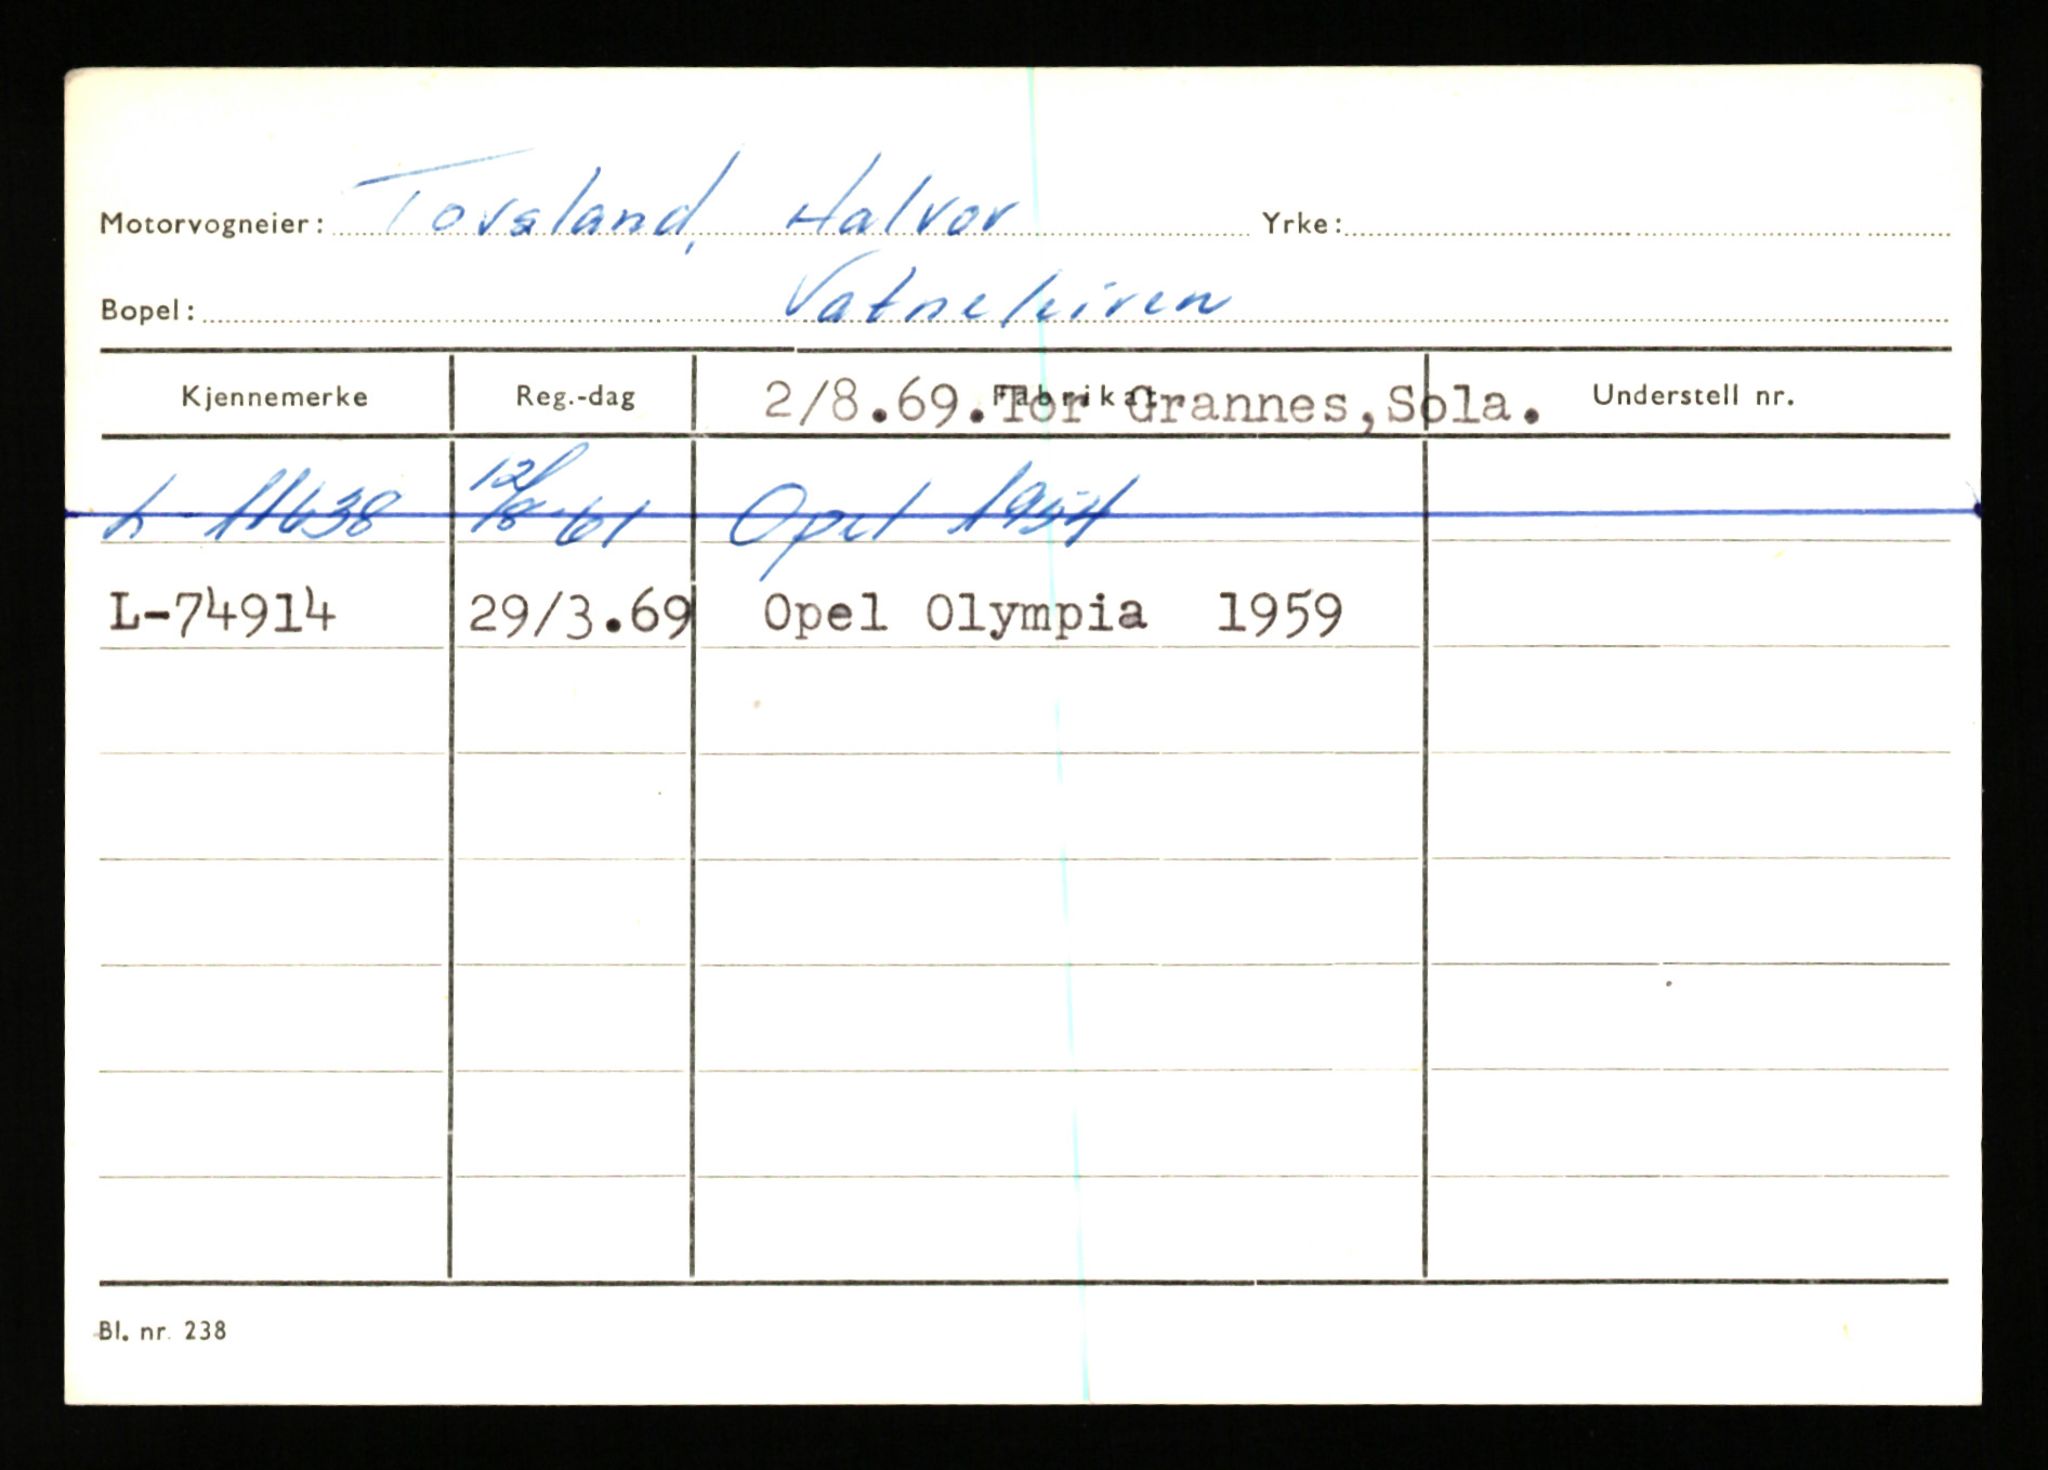 Motorvogneier: Torsland, Halvor Yrke:
Bopel: Vatneleiren
Kjennemerke Reg.-dag Fabrikat Understell nr.
2/8.69.Tor Grannes,Sola.
L-11638 12/8-61 Opel 1954
L-74914 29/3.69 Opel Olympia 1959
Bl. nr. 238